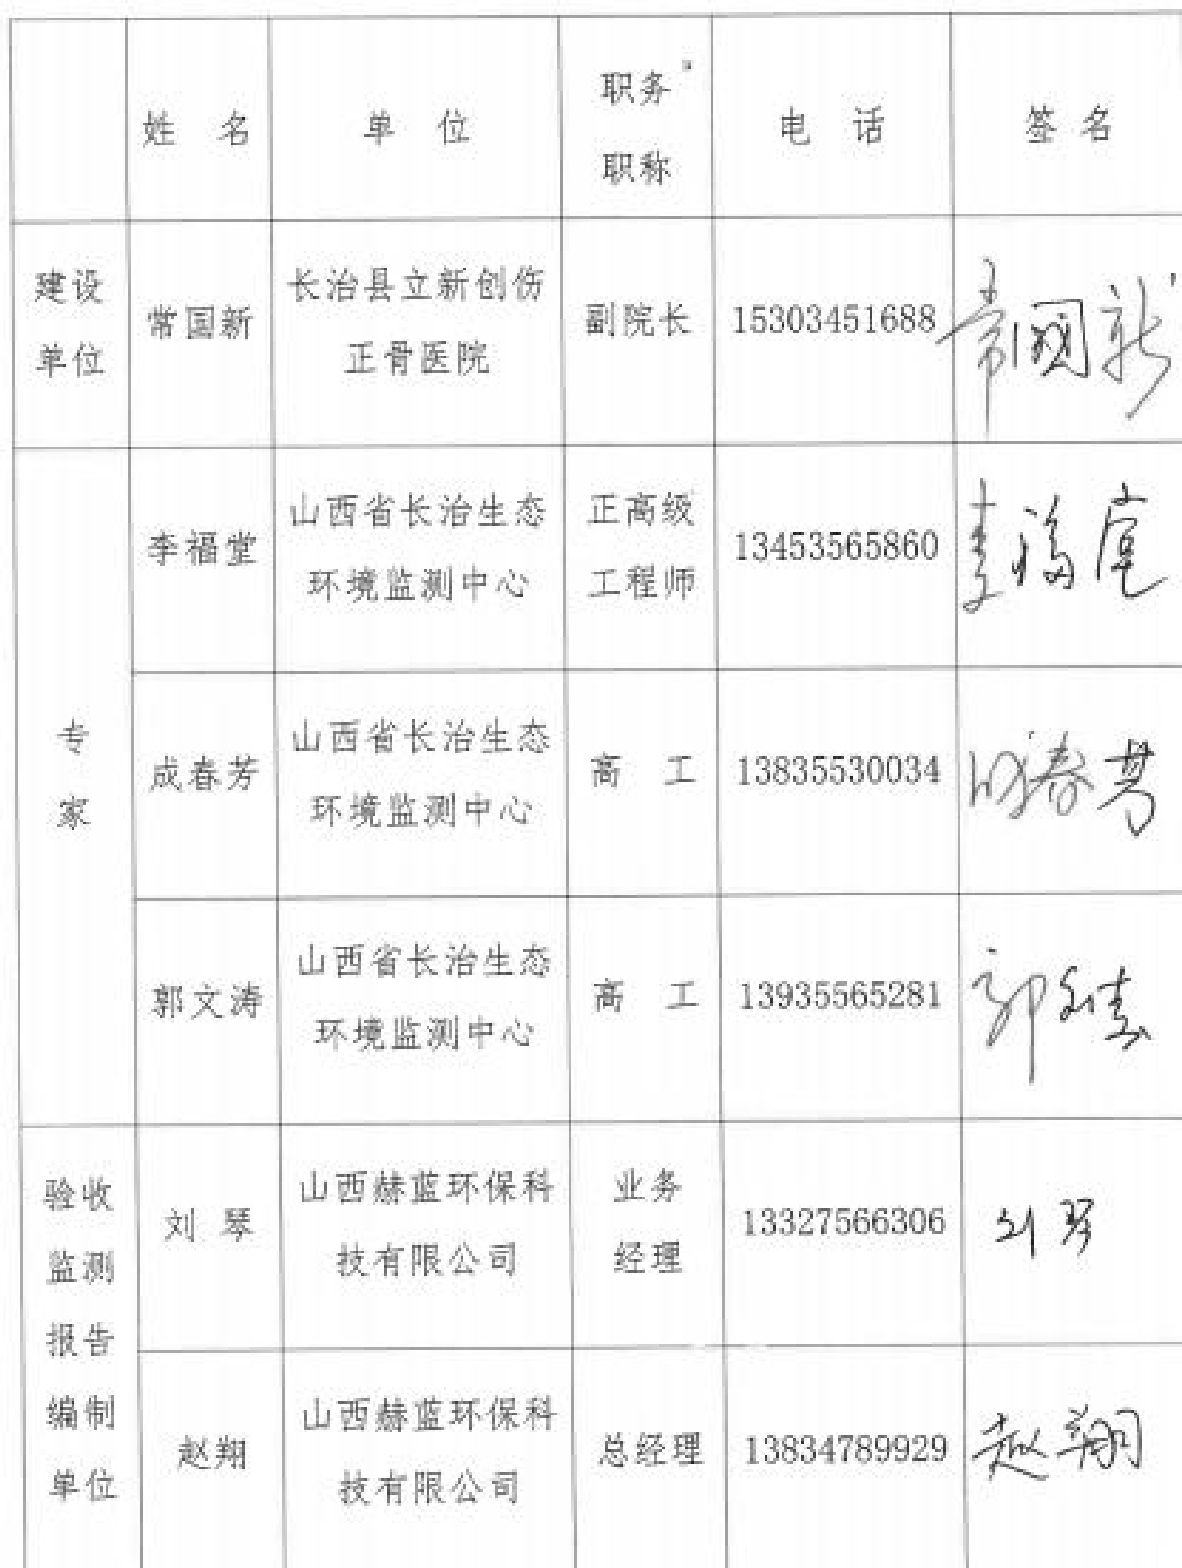 姓 名 单 位 职务 职称 电 话 签 名
建设 单位 常国新 长治县立新创伤 正骨医院 副院长 15303451688 常国新
专 家 李福堂 山西省长治生态 环境监测中心 正高级 工程师 13453565860 李福堂
成春芳 山西省长治生态 环境监测中心 高 工 13835530034 成春芳
郭文涛 山西省长治生态 环境监测中心 高 工 13935565281 郭文涛
验收 监测 报告 编制 单位 刘 琴 山西赫蓝环保科 技有限公司 业务 经理 13327566306 刘琴
赵翔 山西赫蓝环保科 技有限公司 总经理 13834789929 赵翔